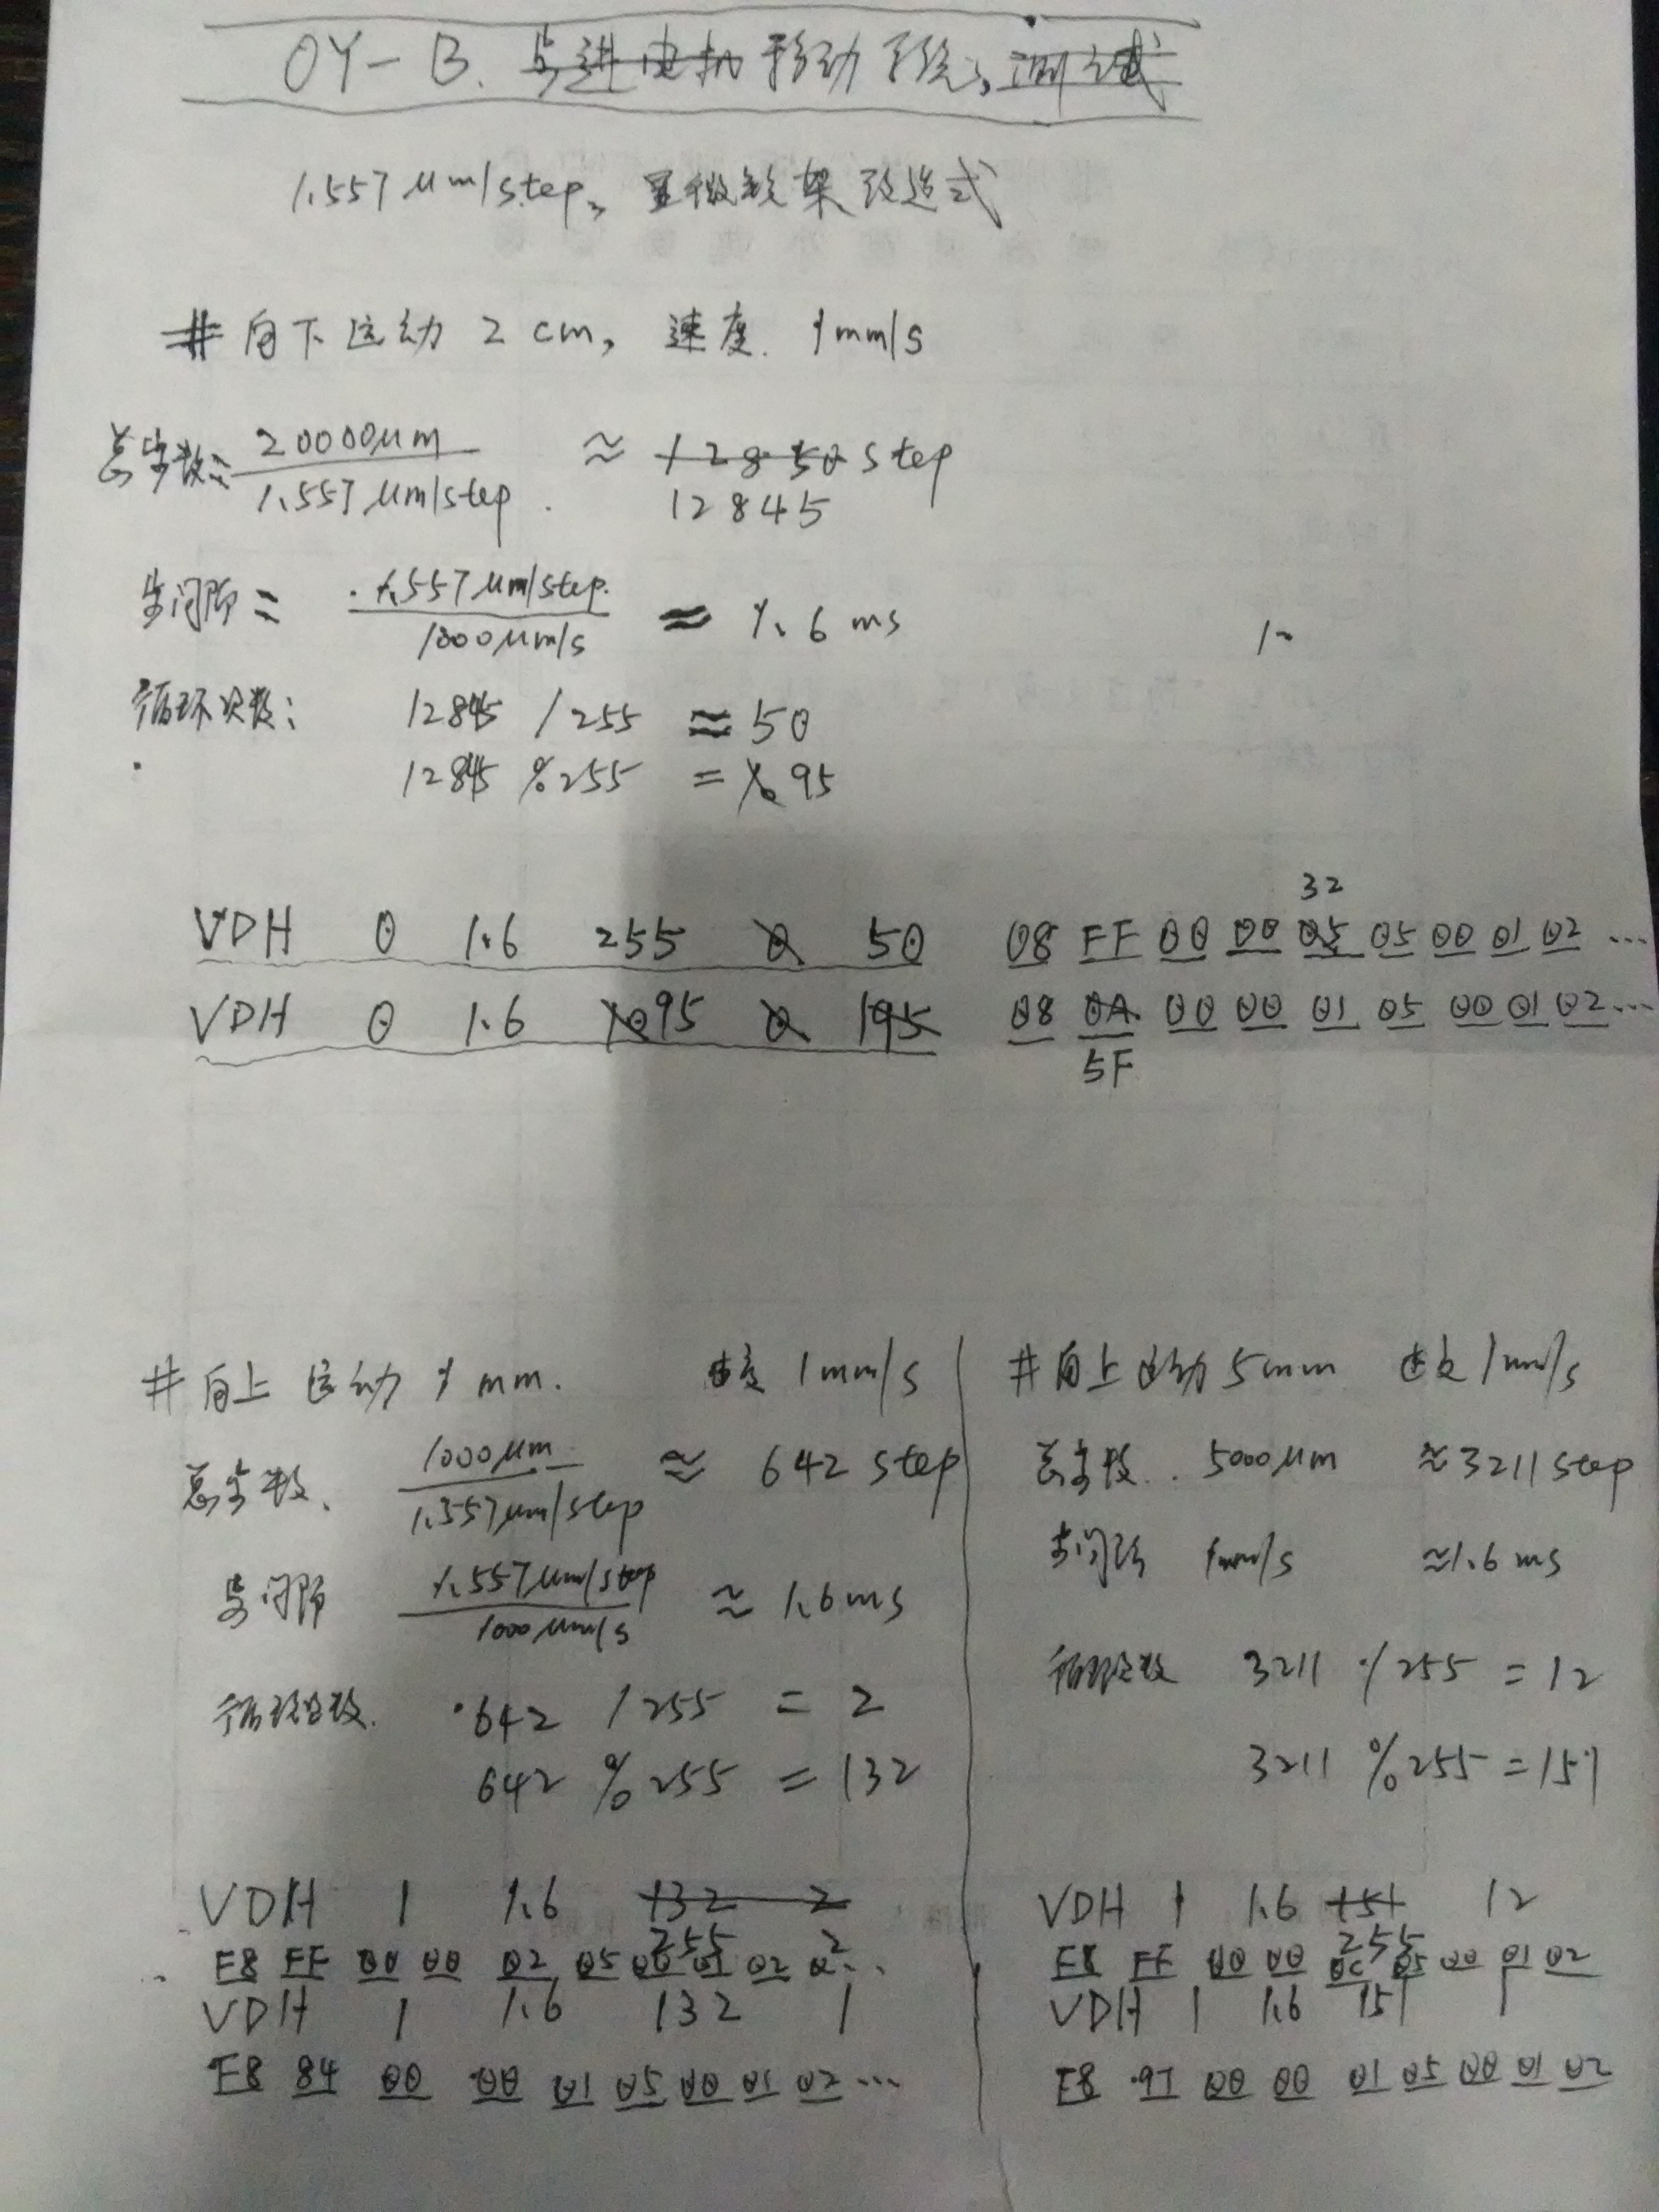 OY-B. 步进电机移动系统测试
1.557 μm/step, 显微镜架改造式
# 向下运动 2 cm, 速度 1mm/s
总步数= 20000μm / 1.557 μm/step ≈ 12850 step
12845
步间隔 = 1.557 μm/step / 1000 μm/s ≈ 1.6 ms
1
循环次数: 12845 / 255 ≈ 50
12845 % 255 = 95
32
VDH 0 1.6 255 0 50 08 FF 00 00 05 05 00 01 02 ...
VDH 0 1.6 1095 0 195 08 0A 00 00 01 05 00 01 02 ...
5F
# 向上运动 1 mm. 速度 1mm/s
总步数、 1000μm / 1.557μm/step ≈ 642 step
步间隔 1.557μm/step / 1000 μm/s ≈ 1.6ms
循环次数. 642 / 255 = 2
642 % 255 = 132
VDH 1 1.6 132 2
255 2
F8 FF 00 00 02 05 00 01 02 ...
VDH 1 1.6 132 1
F8 84 00 00 01 05 00 01 02 ...
# 向上运动 5mm 速度 1mm/s
总步数.. 5000μm ≈3211 step
步间隔 1mm/s ≈1.6 ms
循环次数 3211 / 255 = 12
3211 % 255 = 151
VDH 1 1.6 151 12
255
F8 FF 00 00 0C 05 00 01 02
VDH 1 1.6 151 1
F8 97 00 00 01 05 00 01 02